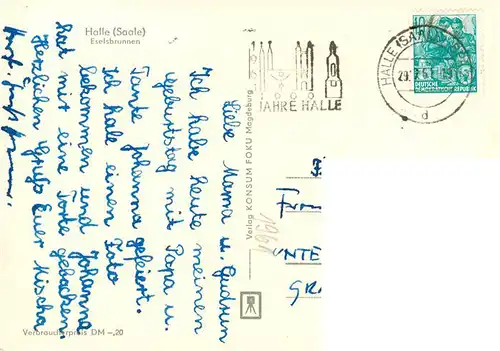 Halle (Saale)
Eselsbrunnen
Liebe Mama u. Gudrun
Ich habe heute meinen
Geburtstag mit Papa u.
Tante Johanna gefeiert.
Ich habe einen Foto
bekommen und Johanna
hat mir eine Torte gebacken.
Herzlichen Gruß Euer Mischa
Verbraucherpreis DM -,20
Verlag KONSUM FOKU Magdeburg
JAHRE HALLE
HALLE (SAALE)
d
10
DEUTSCHE
DEMOKRATISCHE REPUBLIK
1961
UNTE
GR